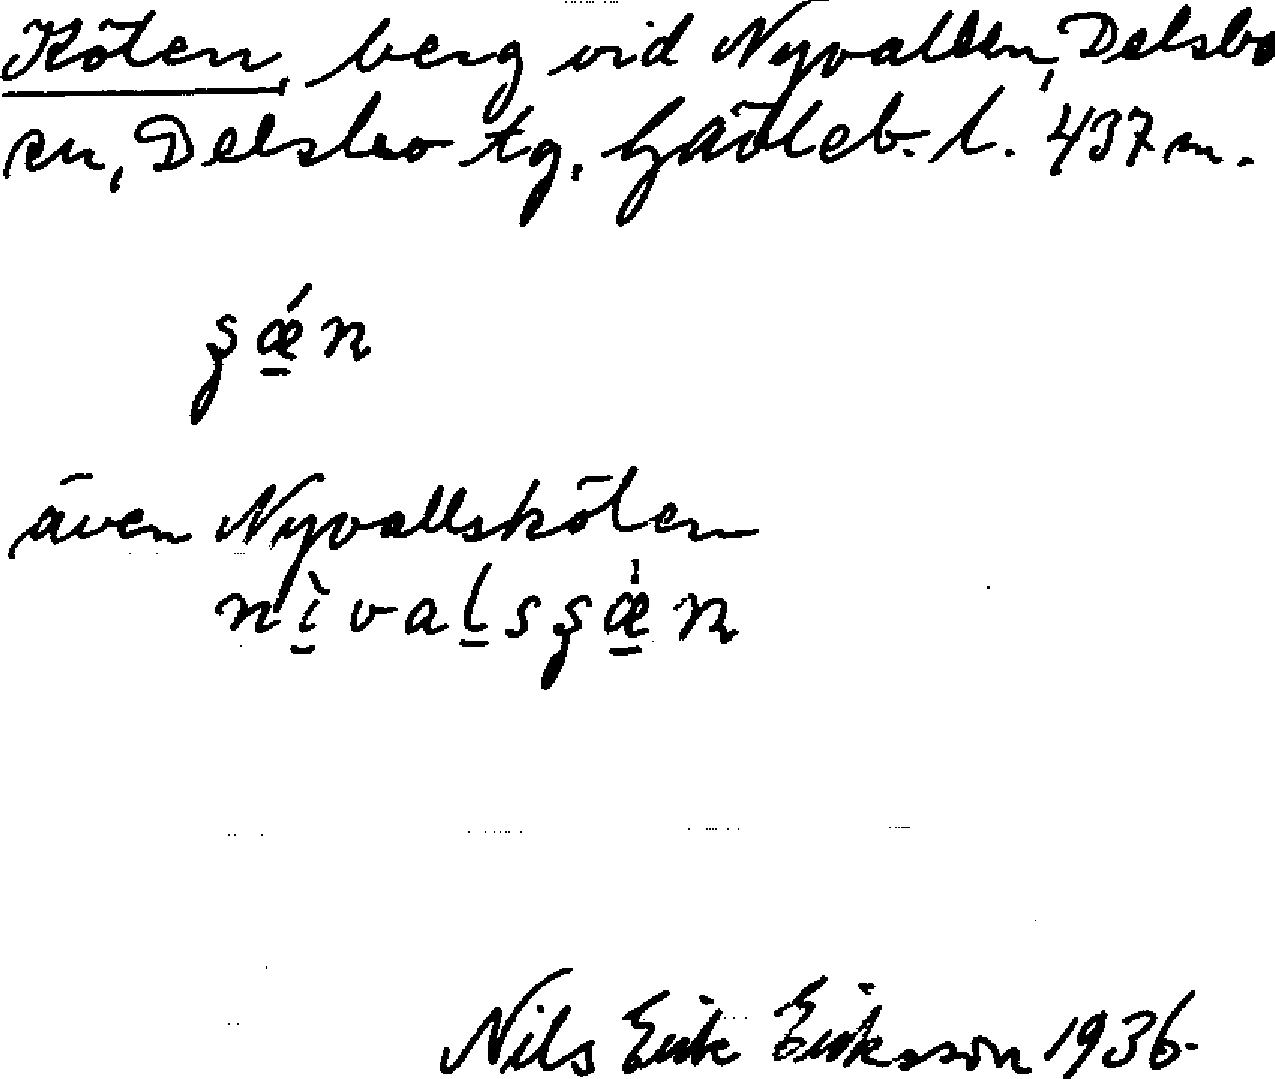 Kölen, berg vid Nyvallen, Delsbo
sn, Delsbo tg, Gävleb. l. 437 m.
även Nyvallskölen
Nils Erik Eriksson 1936.